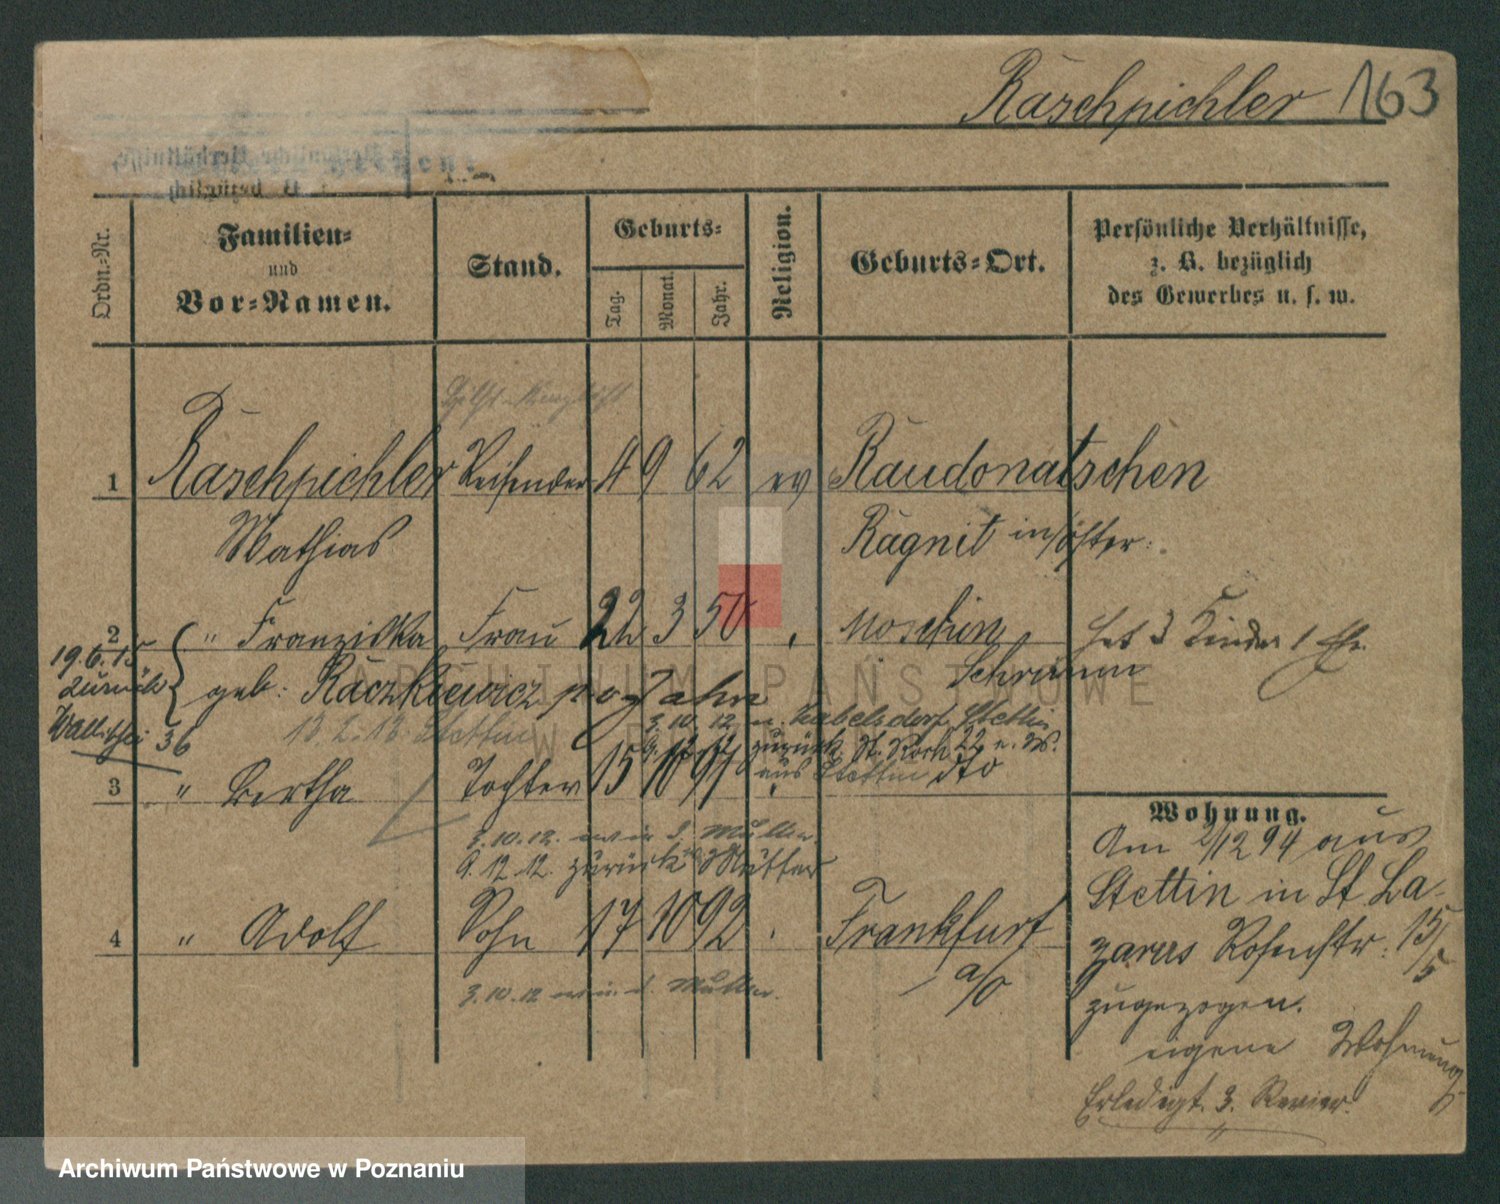 Räschpichler 163
Ordn.-Nr.
Familien-
und
Vor-Namen.
Stand.
Geburts-
Tag.
Monat.
Jahr.
Religion.
Geburts-Ort.
Persönliche Verhältnisse,
z. B. bezüglich
des Gewerbes u. s. w.
1 Räschpichler Reisender 4 9 62 ev Raudonatschen
Mathias Ragnit
2 " Franziska Frau 22 3 50 Moschin
Schrimm
hat 3 Kinder 1 Ehe.
19.6.15
zurück
Wallischei 36
geb: Raczkiewicz
13.2.13. Stettin
3.10.12 n. Zabelsdorf Stettin
9.12.12 zurück St. Roch 22
aus Stettin
3 " Bertha Tochter 15 10 91 dto
3.10.12. wie d. Mutter.
9.12.12. zurück Mutter
4 " Adolf Sohn 17 10 92 Frankfurt
a/O
3.10.12 wie d. Mutter.
Wohnung.
Am 2/12 94 aus
Stettin in St La-
zarus Rosenstr: 15/
5
zugezogen.
eigene Wohnung
Erledigt. 3. Revier.
ARCHIWUM PAŃSTWOWE
Archiwum Państwowe w Poznaniu